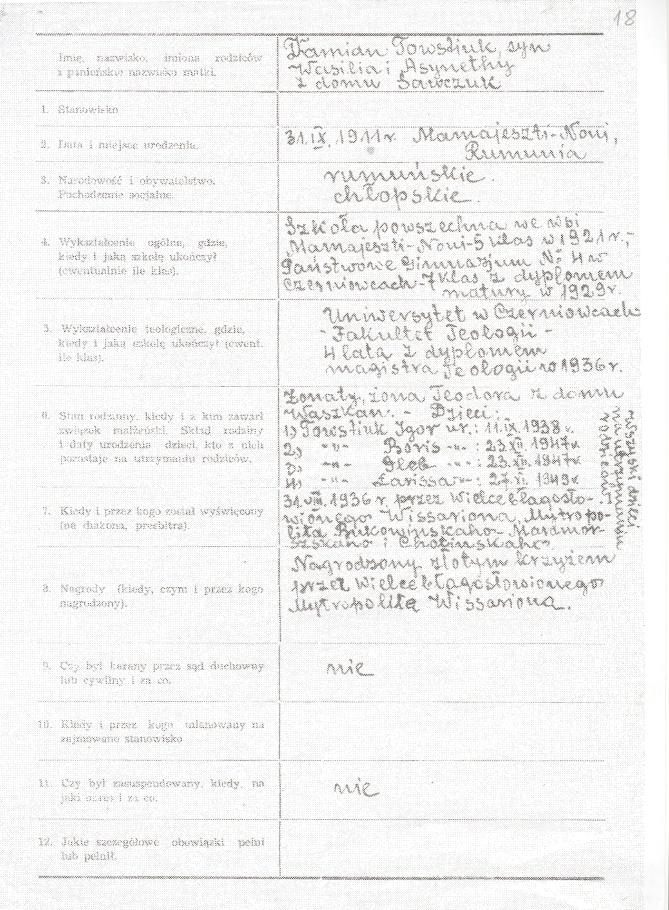 18
Imię, nazwisko, imiona rodziców
i panieńskie nazwisko matki.
Damian Towstiuk, syn
Wasilia i Asynethy
z domu Sawczuk
1. Stanowisko
2. Data i miejsce urodzenia.
31.IX.1911 r. Mamajeszti-Noui,
Rumunia
3. Narodowość i obywatelstwo.
Pochodzenie socjalne.
rumuńskie.
chłopskie.
4. Wykształcenie ogólne, gdzie,
kiedy i jaką szkołę ukończył
(ewentualnie ile klas).
Szkoła powszechna we wsi
Mamajeszti-Noui-5 klas w 1921 r.;
Państwowe Gimnazjum № 4 w
Czerniowcach-7 klas z dyplomem
matury w 1929 r.
5. Wykształcenie teologiczne, gdzie,
kiedy i jaką szkołę ukończył (ewent.
ile klas).
Uniwersytet w Czerniowcach
- Fakultet Teologii -
4 lata z dyplomem
magistra Teologii w 1936 r.
6. Stan rodzinny, kiedy i z kim zawarł
związek małżeński. Skład rodziny
i daty urodzenia dzieci, kto z nich
pozostaje na utrzymaniu rodziców.
Żonaty, żona Teodora z domu
Waszkan. - Dzieci:
1) Towstiuk Igor ur.: 11.IX.1938 r.
2) -"- Boris -"- : 23.XII.1947 r.
3) -"- Gleb -"- : 23.XII.1947 r.
4) -"- Larissa -"- : 27.VI.1949 r.
wszyscy dzieci
na utrzymaniu
rodziców
7. Kiedy i przez kogo został wyświęcony
(na diakona, prezbitra).
31.VIII.1936 r. przez Wielcebłagosło-
wionego Wissariona, Mytropo-
lita Bukowinskaho-Mardmor
szskaho i Chotinskaho.
8. Nagrody (kiedy, czym i przez kogo
nagrodzony).
Nagrodzony złotym krzyżem
przez Wielcebłagosłowionego
Mytropolita Wissariona.
9. Czy był karany przez sąd duchowny
lub cywilny i za co.
nie
10. Kiedy i przez kogo mianowany na
zajmowane stanowisko
11. Czy był zasuspendowany, kiedy, na
jaki okres i za co.
nie
12. Jakie szczegółowe obowiązki pełni
lub pełnił.